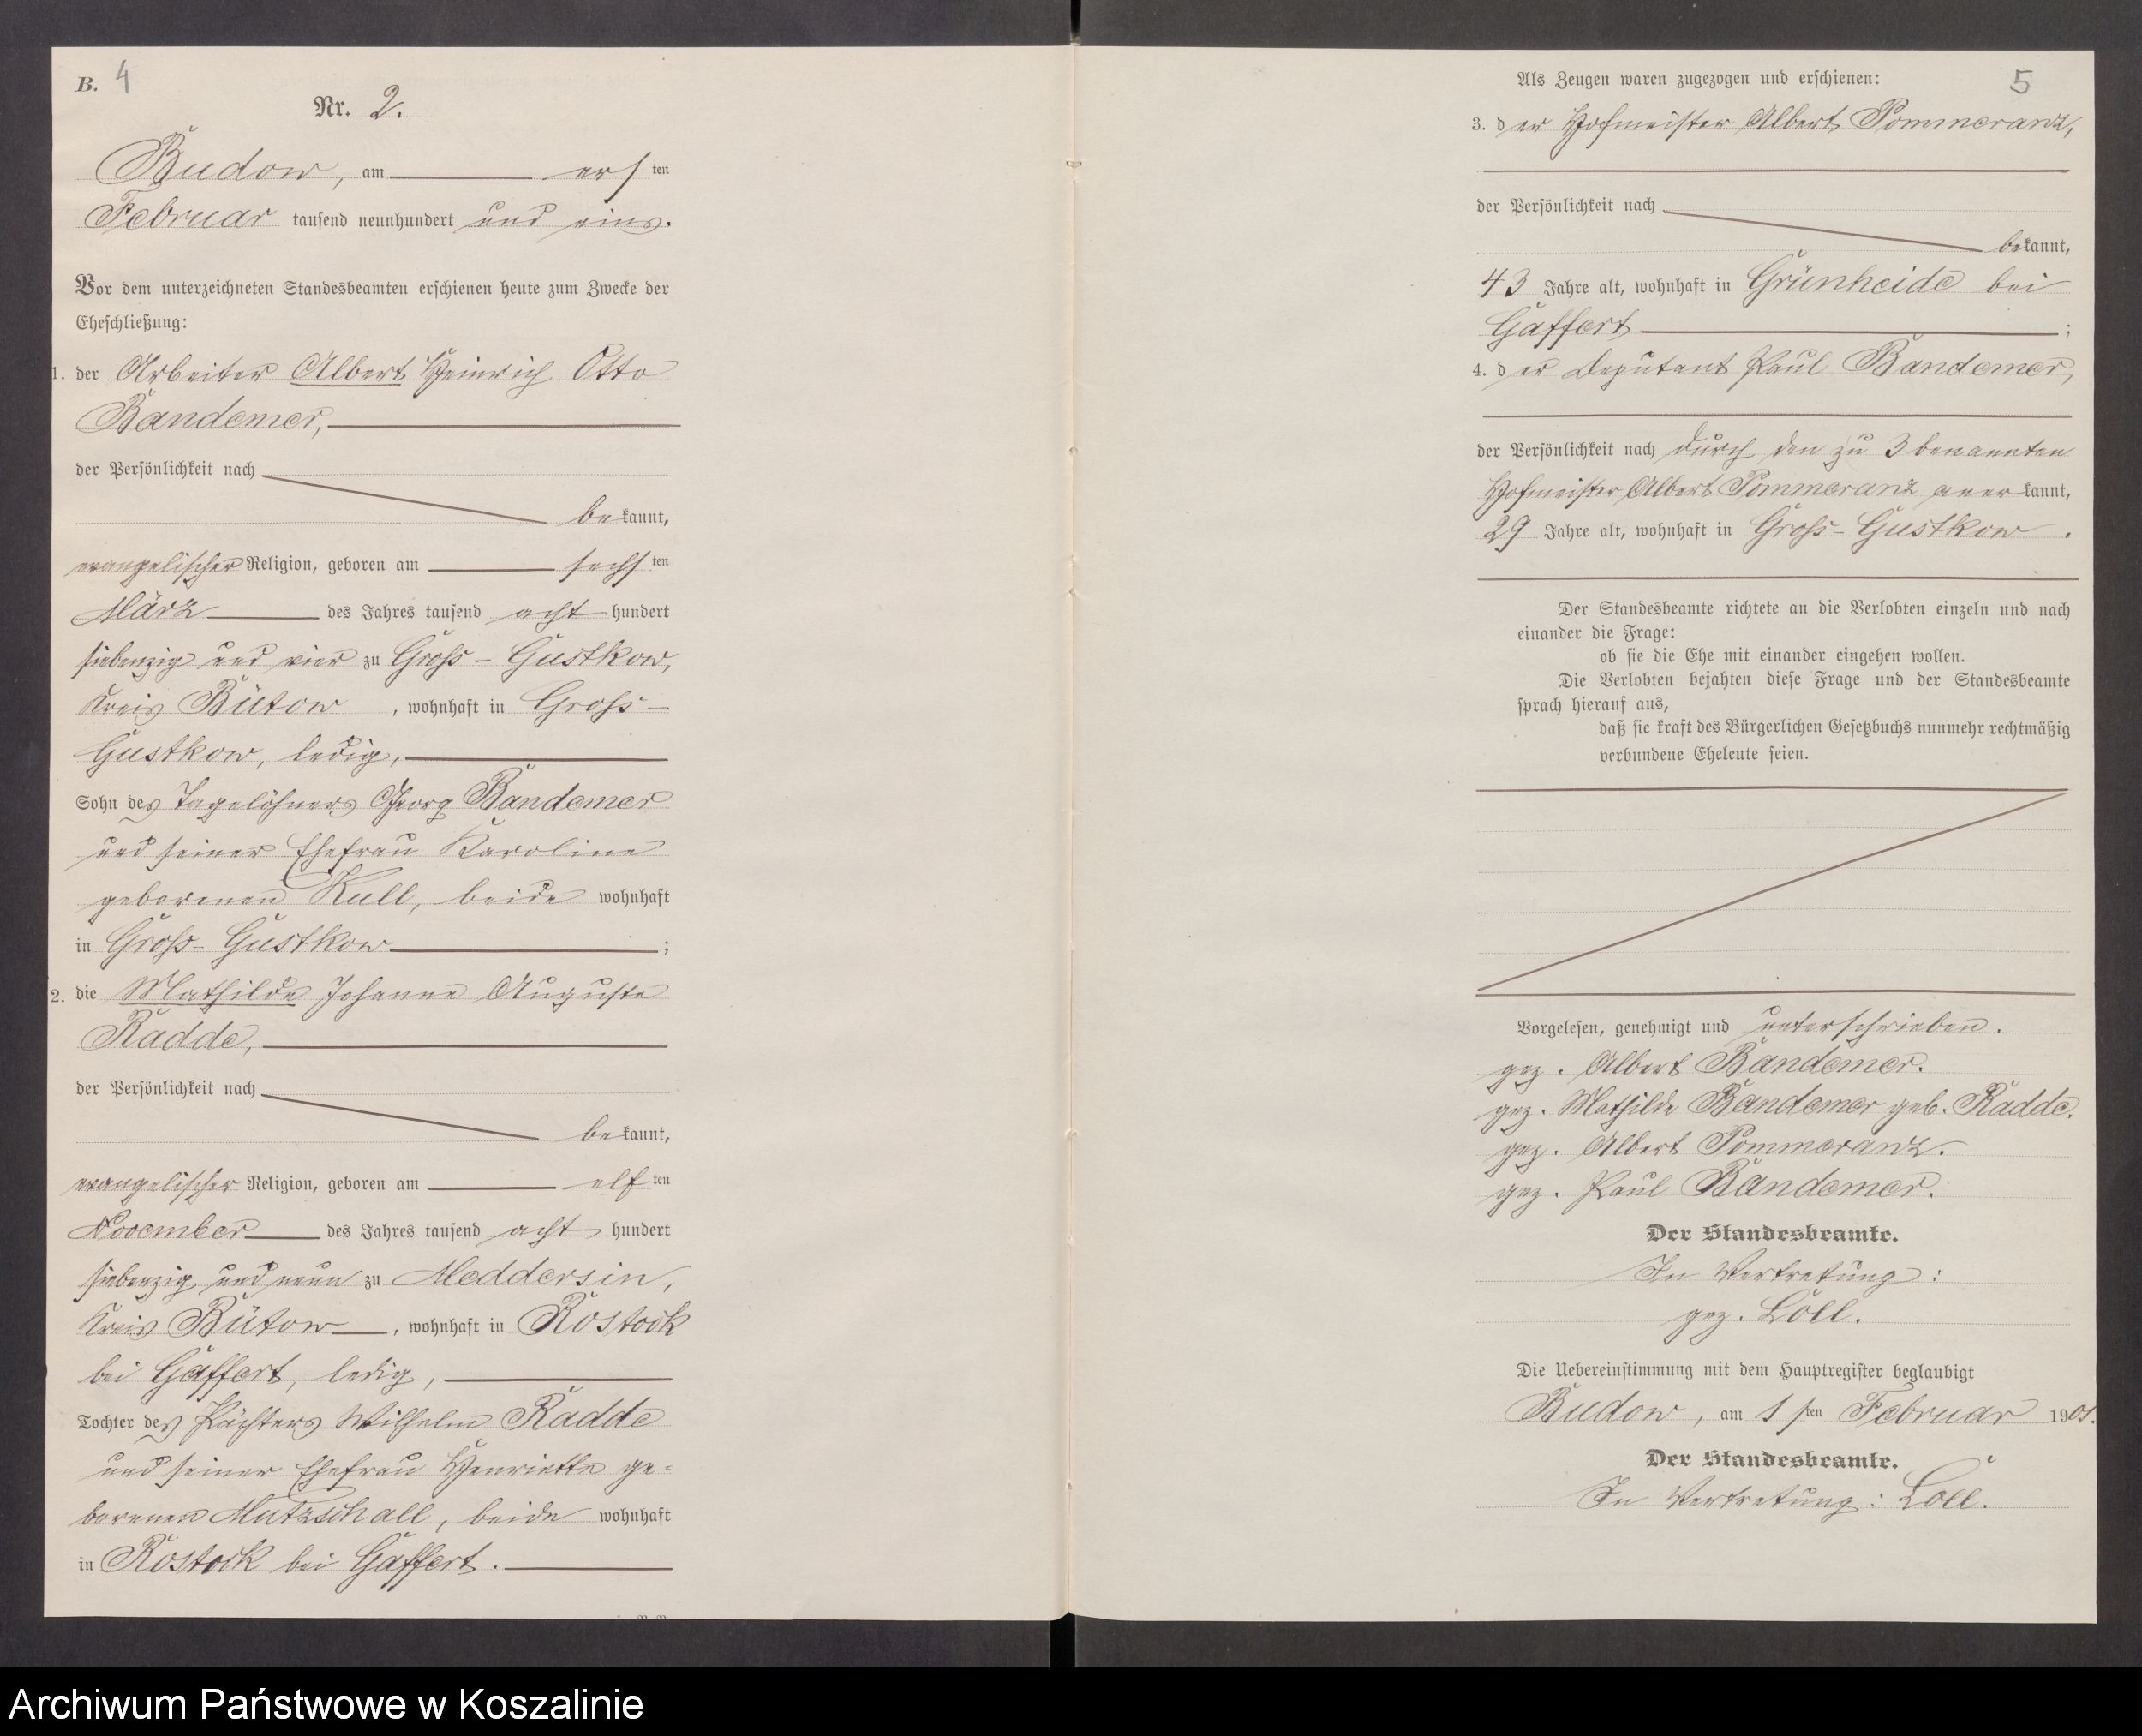 B. 4
Nr. 2.
Budow, am ersten
Februar tausend neunhundert und eins.
Vor dem unterzeichneten Standesbeamten erschienen heute zum Zwecke der
Eheschließung:
1. der Arbeiter Albert Heinrich Otto
Bandemer,
der Persönlichkeit nach
bekannt,
evangelischer Religion, geboren am sechsten
März des Jahres tausend achthundert
siebenzig und vier zu Gross-Gustkow,
Kreis Bütow, wohnhaft in Gross-
Gustkow, ledig,
Sohn des Tagelöhners Georg Bandemer
und seiner Ehefrau Karoline
geborenen Kull, beide wohnhaft
in Gross-Gustkow;
2. die Mathilde Johanne Auguste
Radde,
der Persönlichkeit nach
bekannt,
evangelischer Religion, geboren am elften
November des Jahres tausend achthundert
siebenzig und neun zu Meddersin,
Kreis Bütow, wohnhaft in Rostock
bei Gaffert, ledig,
Tochter des Pächters Wilhelm Radde
und seiner Ehefrau Henriette ge-
borenen Mutzschall, beide wohnhaft
in Rostock bei Gaffert.
5
Als Zeugen waren zugezogen und erschienen:
3. der Hofmeister Albert Pommeranz,
der Persönlichkeit nach
bekannt,
43 Jahre alt, wohnhaft in Grünheide bei
Gaffert;
4. der Deputant Paul Bandemer,
der Persönlichkeit nach durch den zu 3 benannten
Hofmeister Albert Pommeranz anerkannt,
29 Jahre alt, wohnhaft in Gross-Gustkow.
Der Standesbeamte richtete an die Verlobten einzeln und nach
einander die Frage:
ob sie die Ehe mit einander eingehen wollen.
Die Verlobten bejahten diese Frage und der Standesbeamte
sprach hierauf aus,
daß sie kraft des Bürgerlichen Gesetzbuchs nunmehr rechtmäßig
verbundene Eheleute seien.
Vorgelesen, genehmigt und unterschrieben.
gez. Albert Bandemer.
gez. Mathilde Bandemer geb. Radde.
gez. Albert Pommeranz.
gez. Paul Bandemer.
Der Standesbeamte.
In Vertretung:
gez. Loll.
Die Uebereinstimmung mit dem Hauptregister beglaubigt
Budow, am 1sten Februar 1901.
Der Standesbeamte.
In Vertretung: Loll.
Archiwum Państwowe w Koszalinie